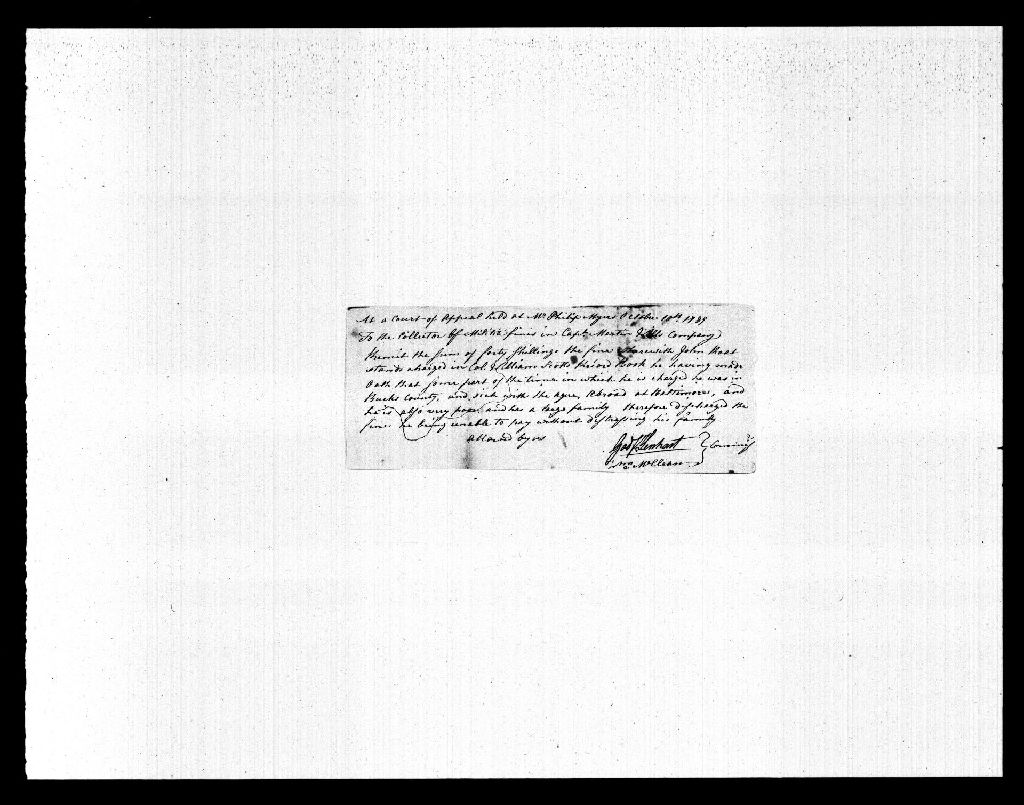 At a Court of Appeal held at Mr Philip Myer October 10th 1789
To the Collector of Militia fines in Capt Martin Company
Remit the Sum of forty Shillings the fine wherewith John
stands charged in Col. William Scotts Record Book he having made
Oath that some part of the time in which he is charged he was in
Bucks County, and sick with the ague, Abroad at Baltimore, and
he is also very poor and has a large family therefore discharged the
fine he being unable to pay without distressing his family
allowed by us
Lenhart
Wm McClean